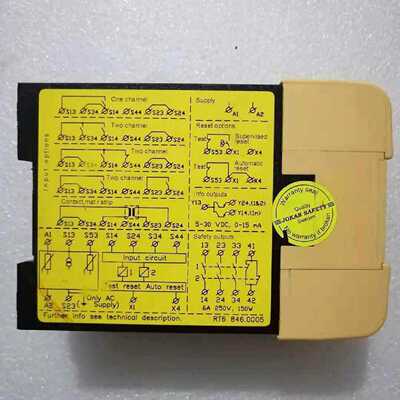 One channel
S13 S34 S14 S44 S23 S24
Two channel
S13 S34 S14 S44 S23 S24
Two channel
S13 S14 S44 S23 S24
Two channel
S13 S34 S14 S44 S23 S24
Contact mat / strip
S13 S34 S14 S44 S23 S24
Input options
Supply
A1 A2
Reset options
Test Supervised reset
S53 X1 X4
Test Automatic reset
S53 X1 X4
Info outputs
Y13 Y24,(1&2)
Y14,(In)
5-30 VDC, 0-15 mA
A1 S13 S53 S14 S24 S34 S44
Input circuit
1 2
Test reset Auto reset
(Only AC Supply)
A2 S23 X1 X4
Safety outputs
13 23 33 41
1
2
14 24 34 42
6A 250V, 150W
Further info see technical description.
RT6 846.0005
Warranty seal
Quality
JOKAB SAFETY
Sweden
No warranty if broken